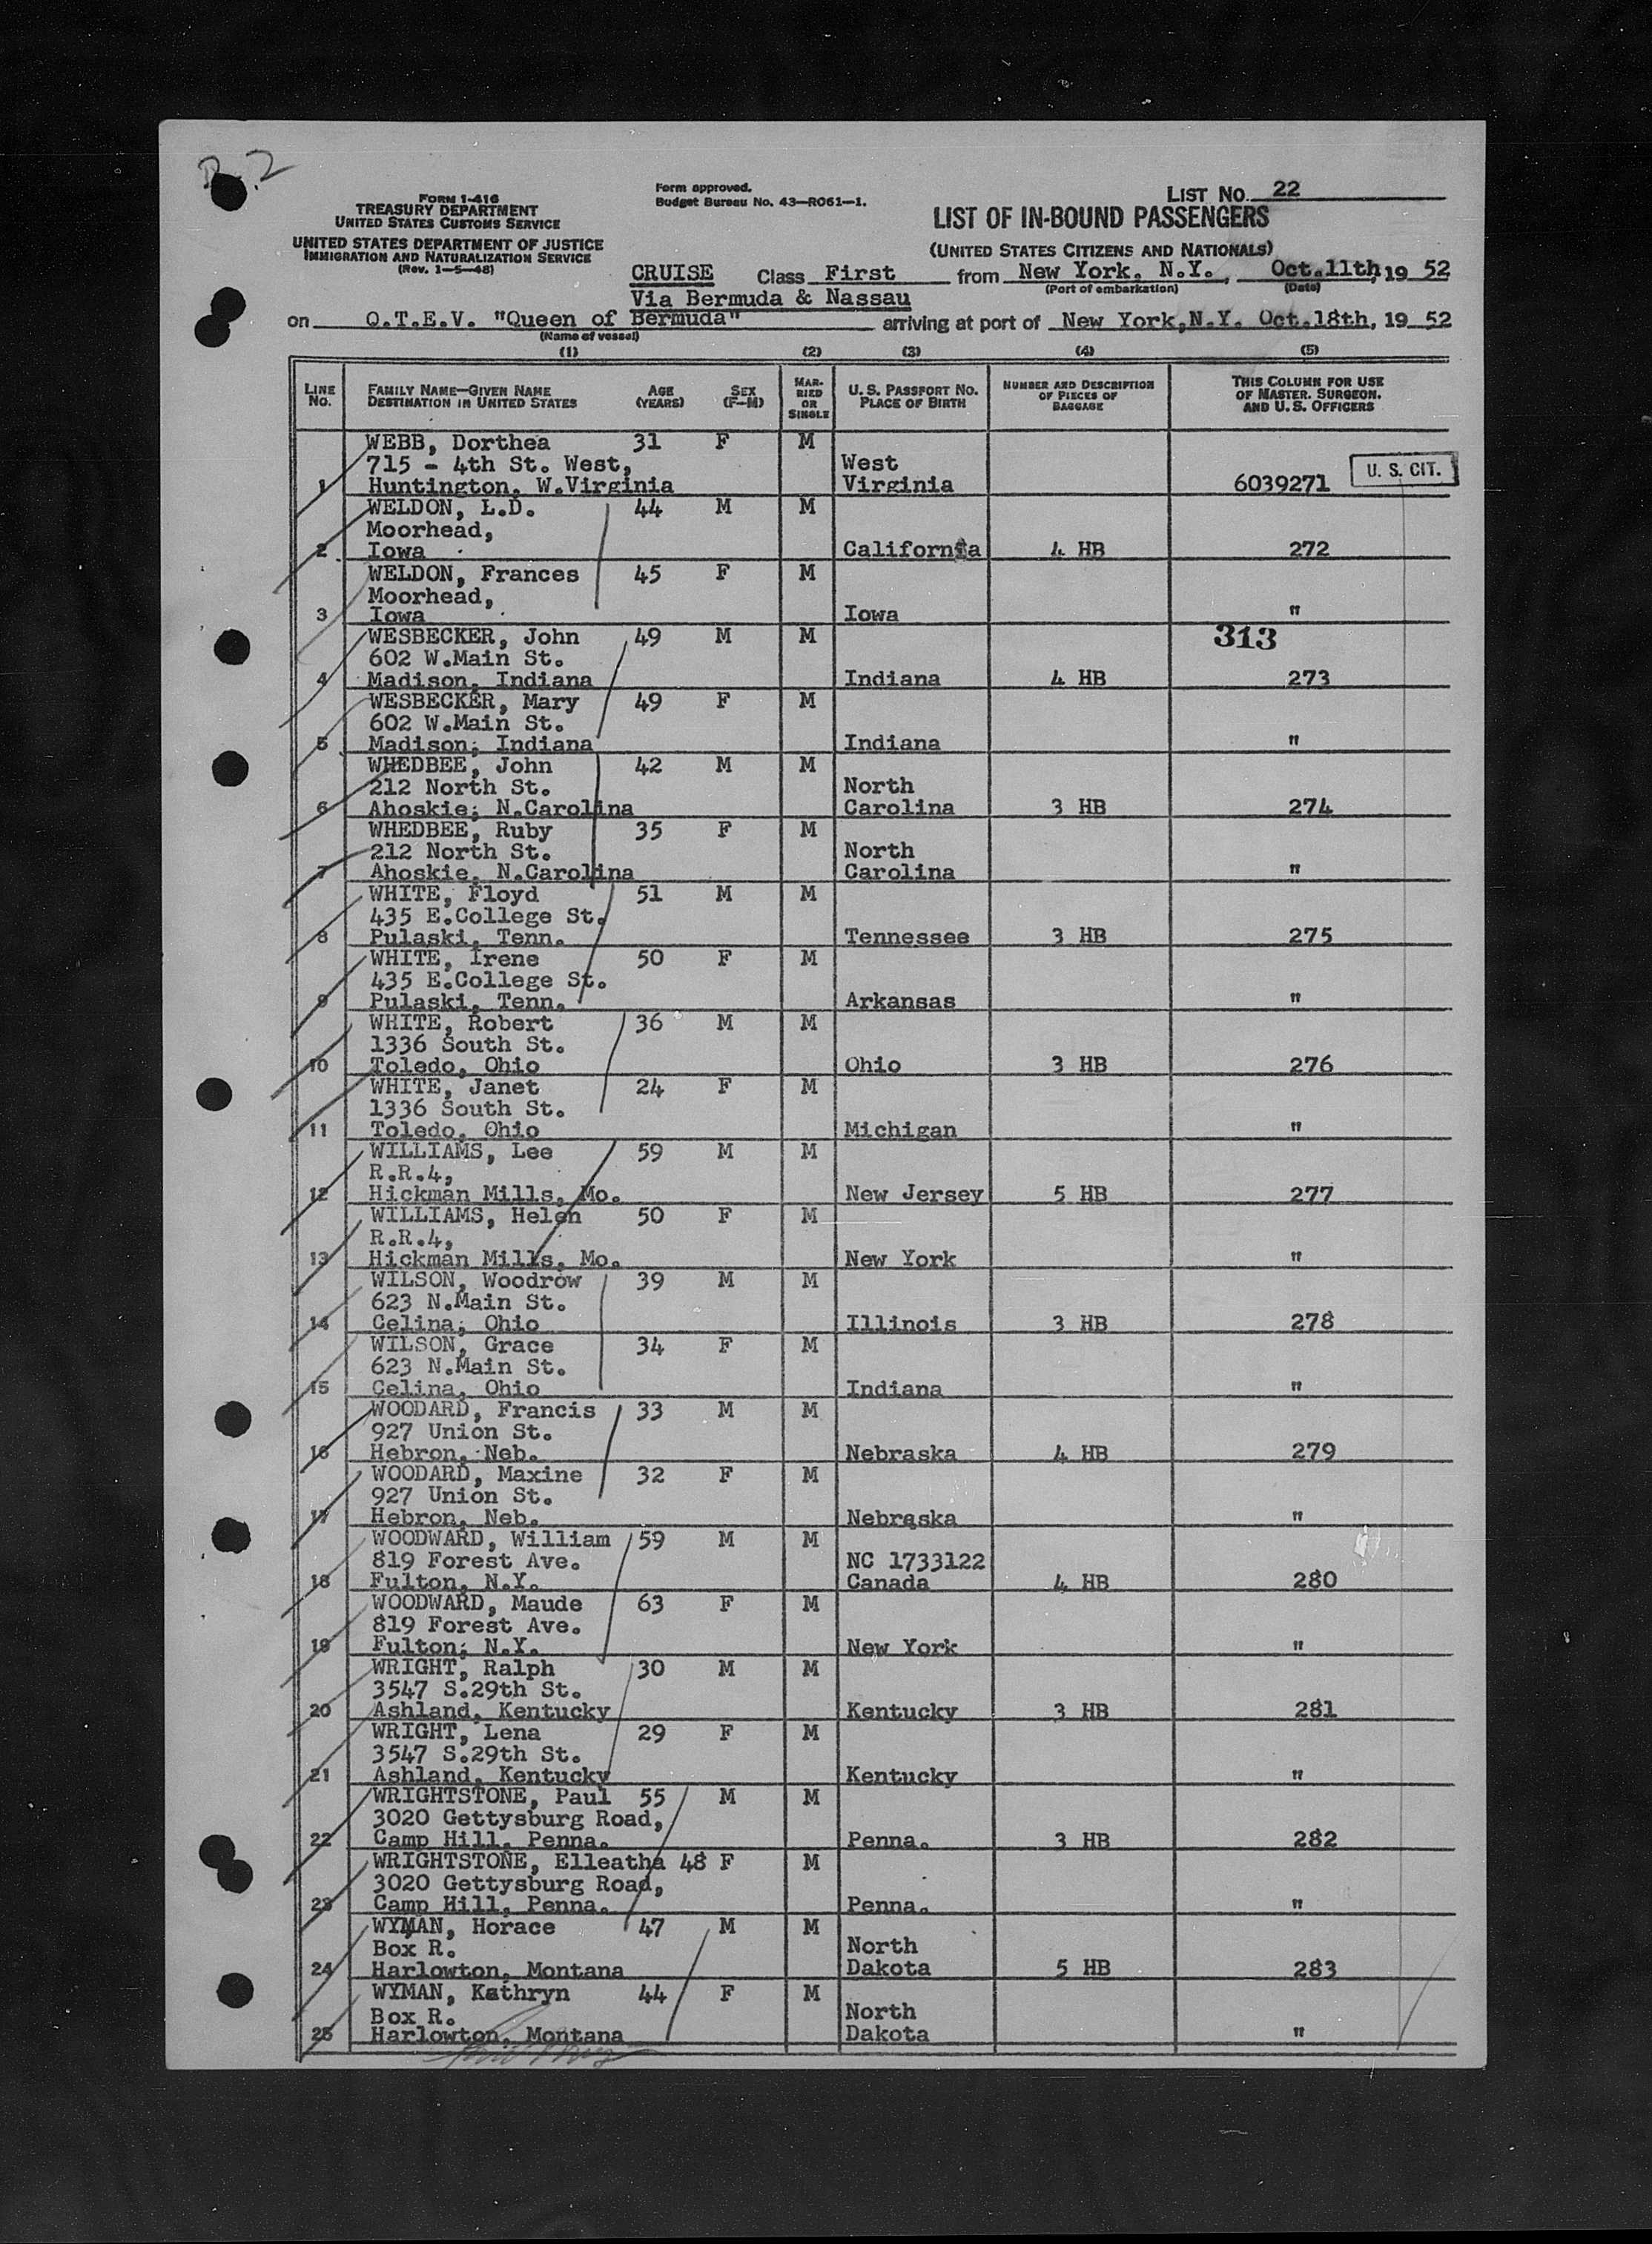 FORM I-416
TREASURY DEPARTMENT
UNITED STATES CUSTOMS SERVICE
UNITED STATES DEPARTMENT OF JUSTICE
IMMIGRATION AND NATURALIZATION SERVICE
(Rev. 1-5-48)
Form approved.
Budget Bureau No. 43-R061-1.
LIST No. 22
LIST OF IN-BOUND PASSENGERS
(UNITED STATES CITIZENS AND NATIONALS)
CRUISE Class First from New York, N.Y., Oct.11th, 19 52
(Port of embarkation) (Date)
Via Bermuda & Nassau
on Q.T.E.V. "Queen of Bermuda" arriving at port of New York, N.Y. Oct.18th, 19 52
(Name of vessel)
(1) (2) (3) (4) (5)
LINE No. FAMILY NAME—GIVEN NAME DESTINATION IN UNITED STATES AGE (YEARS) SEX (F-M) MARRIED OR SINGLE U. S. PASSPORT NO. PLACE OF BIRTH NUMBER AND DESCRIPTION OF PIECES OF BAGGAGE THIS COLUMN FOR USE OF MASTER, SURGEON, AND U. S. OFFICERS
WEBB, Dorthea 31 F M
715 - 4th St. West, West
1 Huntington, W.Virginia Virginia 6039271 U. S. CIT.
WELDON, L.D. 44 M M
Moorhead,
2 Iowa California 4 HB 272
WELDON, Frances 45 F M
Moorhead,
3 Iowa Iowa "
WESBECKER, John 49 M M 313
602 W.Main St.
4 Madison, Indiana Indiana 4 HB 273
WESBECKER, Mary 49 F M
602 W.Main St.
5 Madison, Indiana Indiana "
WHEDBEE, John 42 M M
212 North St. North
6 Ahoskie, N.Carolina Carolina 3 HB 274
WHEDBEE, Ruby 35 F M
212 North St. North
7 Ahoskie, N.Carolina Carolina "
WHITE, Floyd 51 M M
435 E.College St.
8 Pulaski, Tenn. Tennessee 3 HB 275
WHITE, Irene 50 F M
435 E.College St.
9 Pulaski, Tenn. Arkansas "
WHITE, Robert 36 M M
1336 South St.
10 Toledo, Ohio Ohio 3 HB 276
WHITE, Janet 24 F M
1336 South St.
11 Toledo, Ohio Michigan "
WILLIAMS, Lee 59 M M
R.R.4,
12 Hickman Mills, Mo. New Jersey 5 HB 277
WILLIAMS, Helen 50 F M
R.R.4,
13 Hickman Mills, Mo. New York "
WILSON, Woodrow 39 M M
623 N.Main St.
14 Celina, Ohio Illinois 3 HB 278
WILSON, Grace 34 F M
623 N.Main St.
15 Celina, Ohio Indiana "
WOODARD, Francis 33 M M
927 Union St.
16 Hebron, Neb. Nebraska 4 HB 279
WOODARD, Maxine 32 F M
927 Union St.
17 Hebron, Neb. Nebraska "
WOODWARD, William 59 M M
819 Forest Ave. NC 1733122
18 Fulton, N.Y. Canada 4 HB 280
WOODWARD, Maude 63 F M
819 Forest Ave.
19 Fulton, N.Y. New York "
WRIGHT, Ralph 30 M M
3547 S.29th St.
20 Ashland, Kentucky Kentucky 3 HB 281
WRIGHT, Lena 29 F M
3547 S.29th St.
21 Ashland, Kentucky Kentucky "
WRIGHTSTONE, Paul 55 M M
3020 Gettysburg Road,
22 Camp Hill, Penna. Penna. 3 HB 282
WRIGHTSTONE, Elleatha 48 F M
3020 Gettysburg Road,
23 Camp Hill, Penna. Penna. "
WYMAN, Horace 47 M M
Box R. North
24 Harlowton, Montana Dakota 5 HB 283
WYMAN, Kathryn 44 F M
Box R. North
25 Harlowton, Montana Dakota "